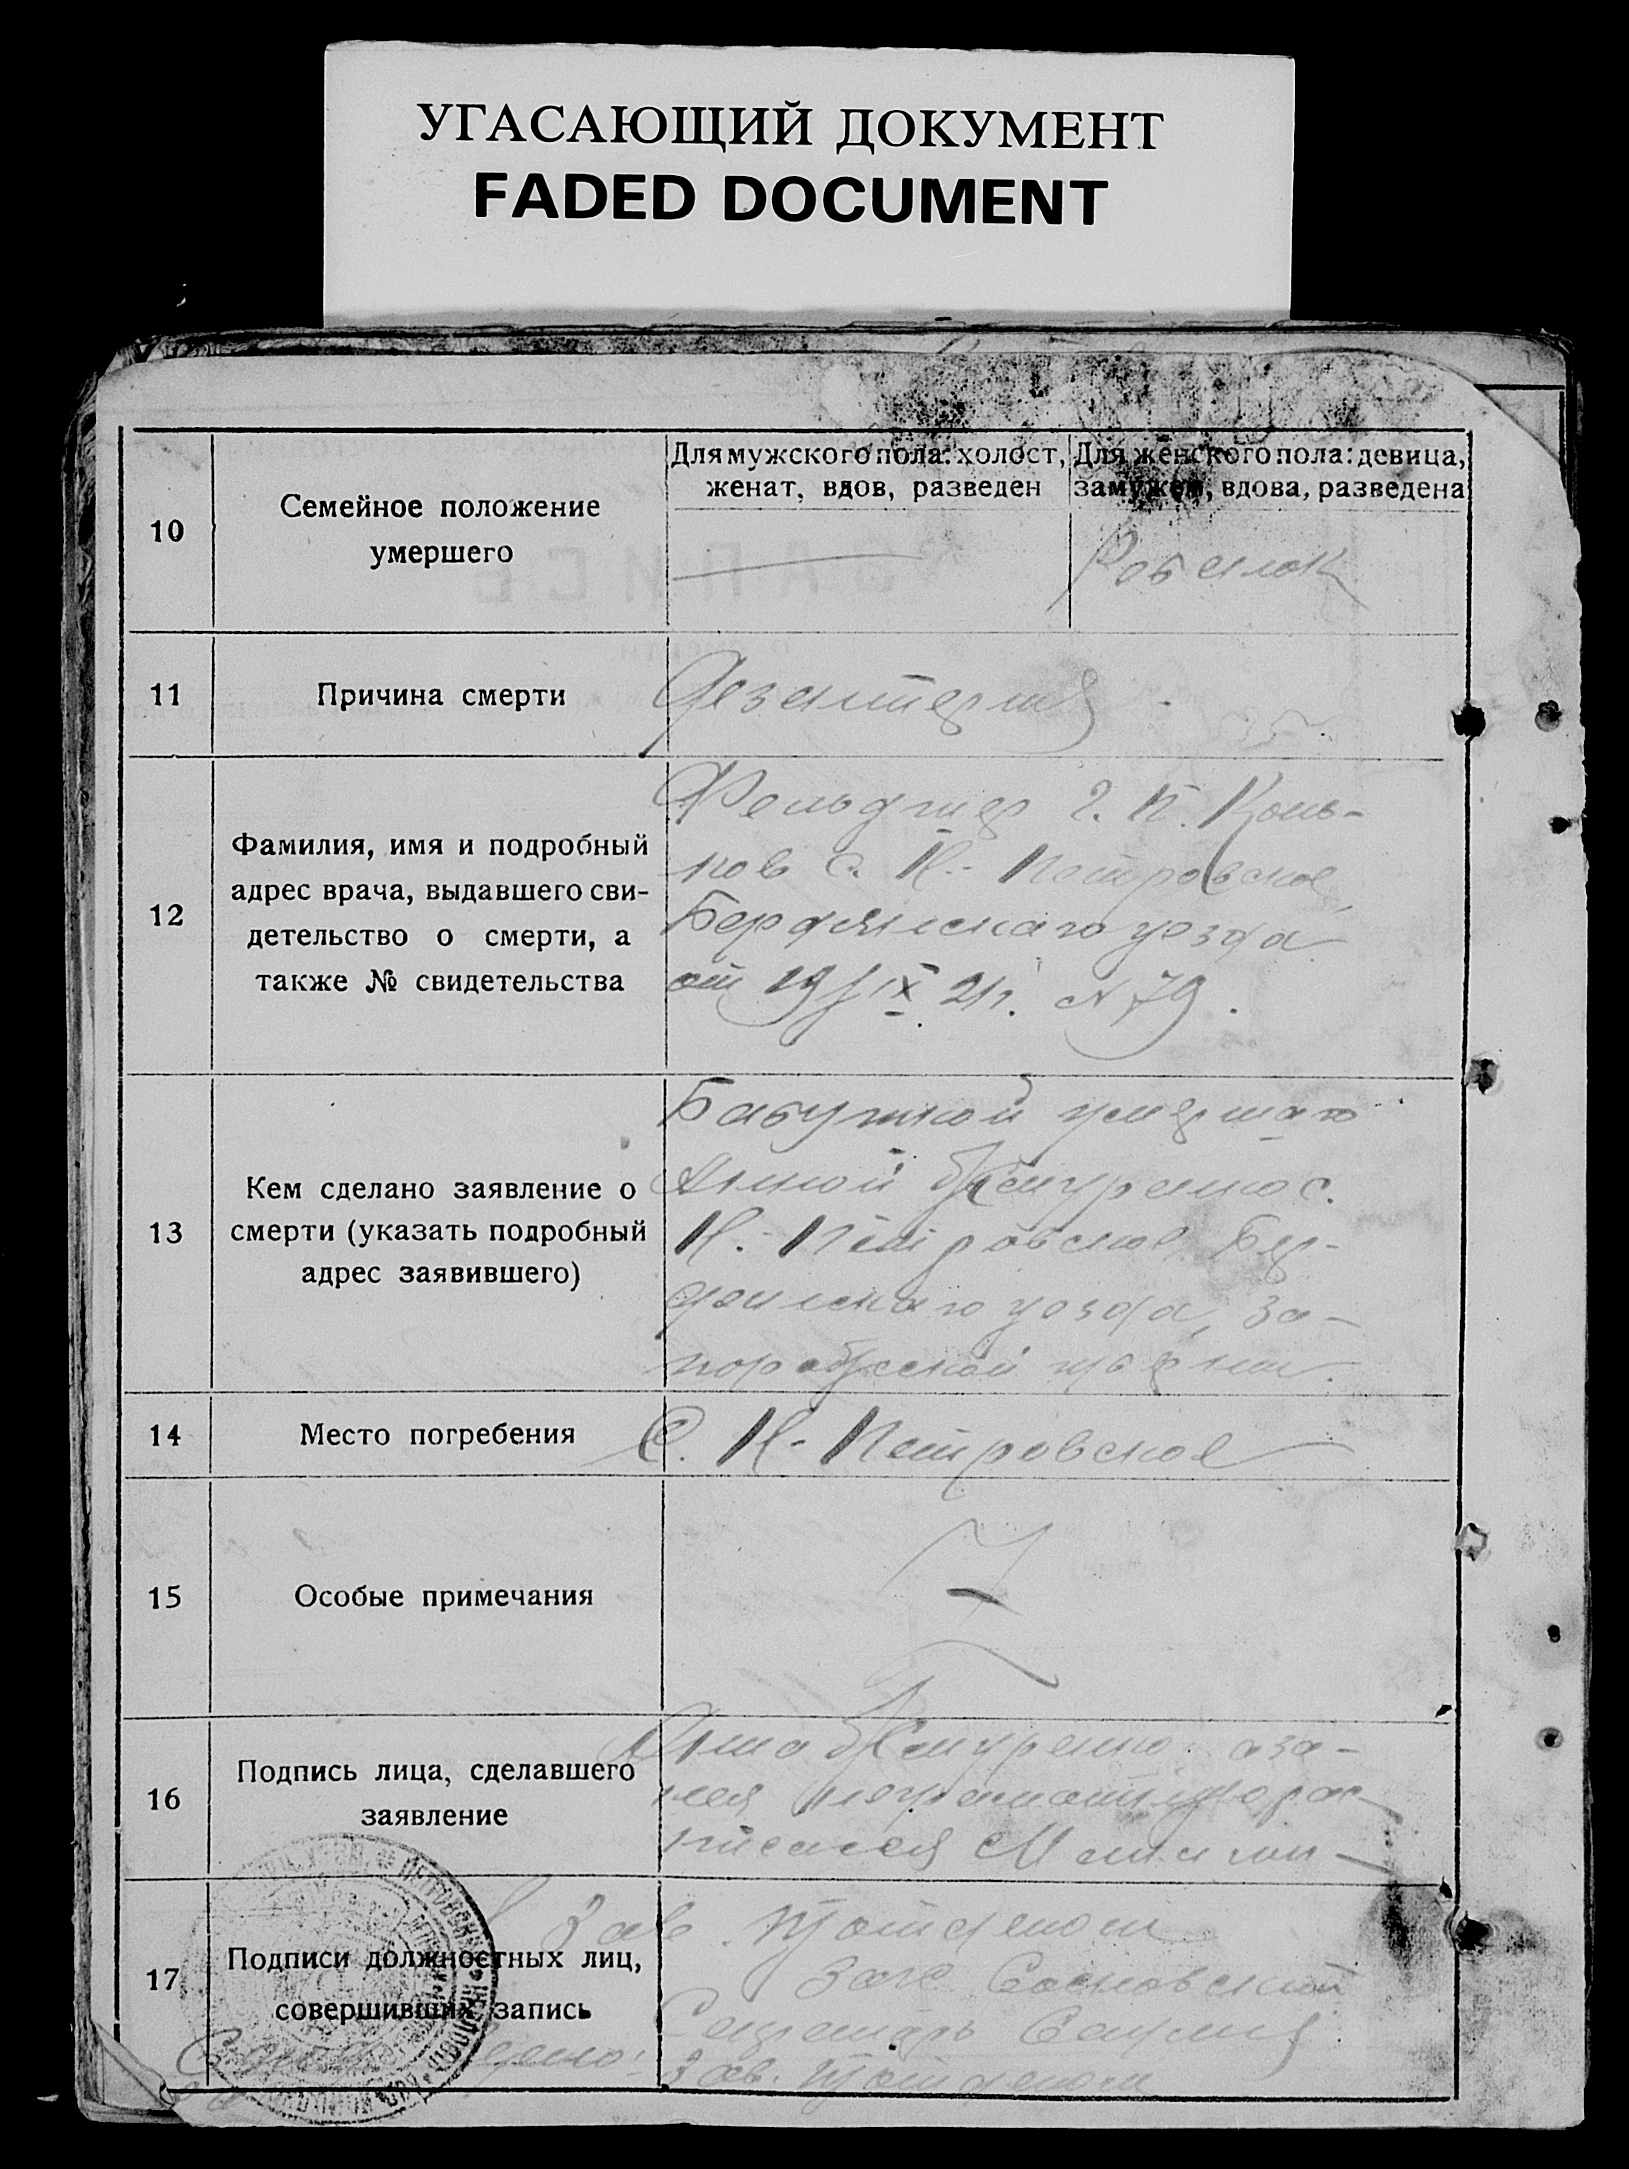 УГАСАЮЩИЙ ДОКУМЕНТ
FADED DOCUMENT
10
Семейное положение
умершего
Для мужского пола: холост,
женат, вдов, разведен
Для женского пола: девица,
замужем, вдова, разведена
Ребенок
11
Причина смерти
Дезентерия
12
Фамилия, имя и подробный
адрес врача, выдавшего сви-
детельство о смерти, а
также № свидетельства
Фельдшер Г. П. Конь-
ков с. Н.-Петровское
Бердянскаго уезда
от 19/IX 21г. № 79.
13
Кем сделано заявление о
смерти (указать подробный
адрес заявившего)
Бабушкой умершаго
Анной с.
Н.-Петровское Бер-
дянскаго уезда, За-
порожской губернии.
14
Место погребения
С. Н-Петровское
15
Особые примечания
16
Подпись лица, сделавшего
заявление
Анна а за-
нея неграмотную рос-
писался
17
Подписи должностных лиц,
совершивших запись
Зав.
Сосновский
Секретарь
Зав.